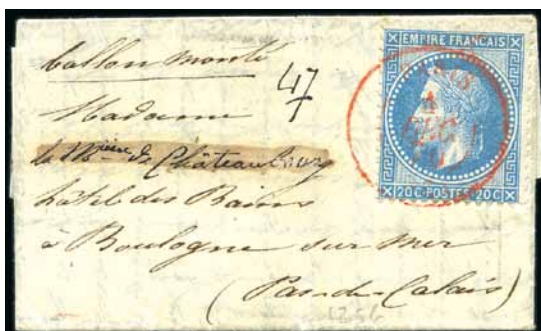 ballon monté
47
Madame
la M^ise de Châteaubourg
hôtel des Bains
à Boulogne sur mer
(Pas-de-Calais)
EMPIRE FRANÇAIS
20C-POSTES-20C
PARIS
DEC